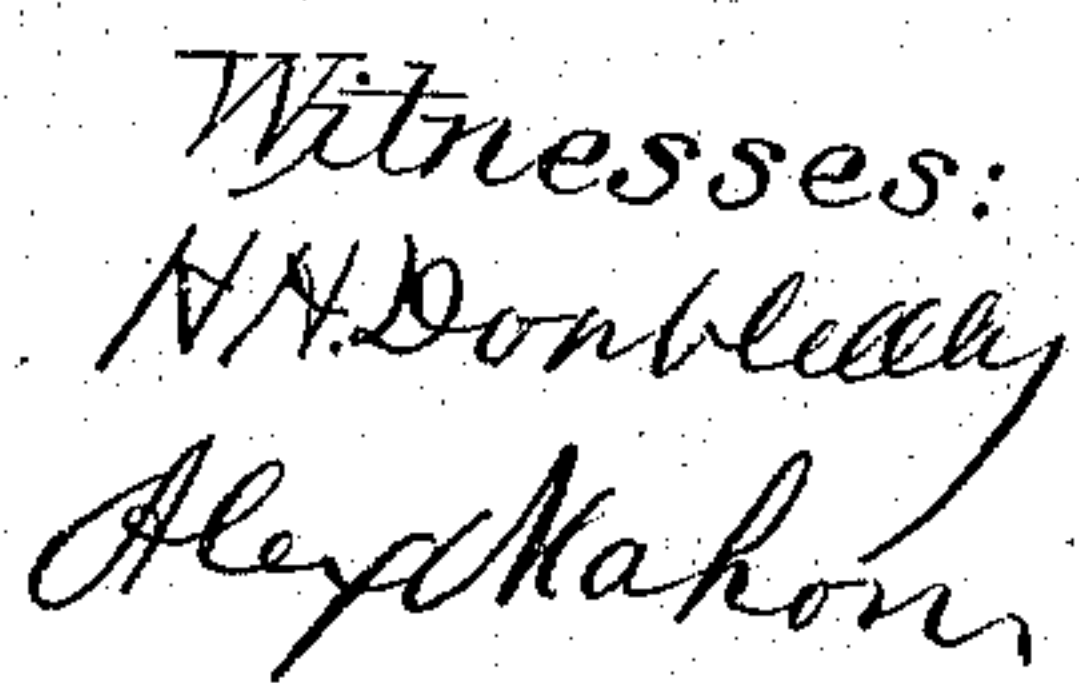 Witnesses:
H. H. Doubleday
Alex Mahon